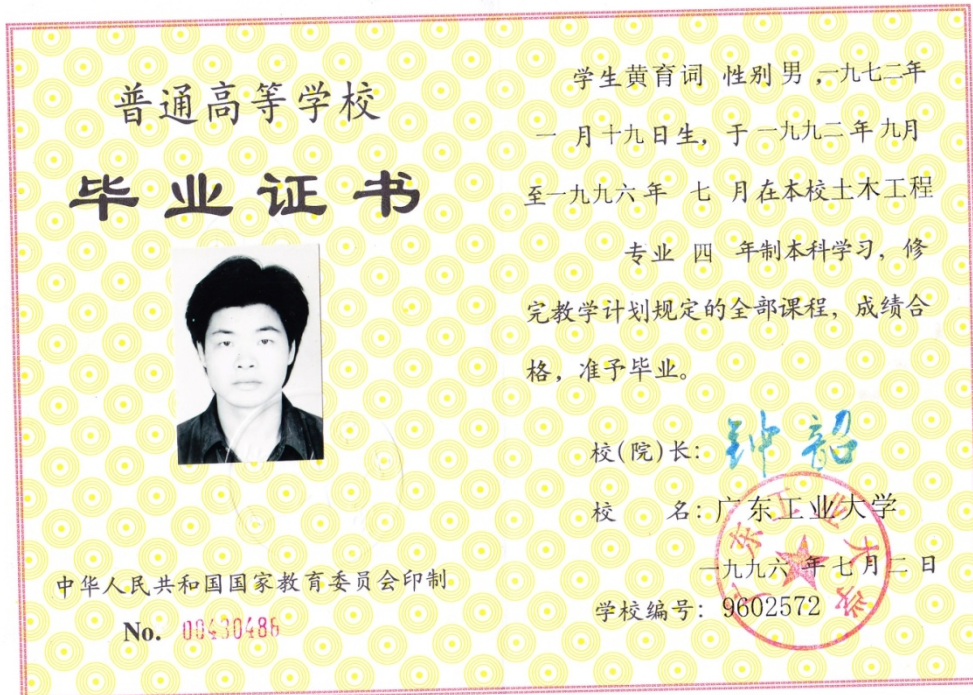 普通高等学校
毕业证书
中华人民共和国国家教育委员会印制
No. 00430486
学生黄育词 性别男,一九七二年
一月十九日生,于一九九二年九月
至一九九六年 七 月在本校土木工程
专业 四 年制本科学习,修
完教学计划规定的全部课程,成绩合
格,准予毕业。
校(院)长:钟韶
校 名:广东工业大学
一九九六年七月二日
学校编号:9602572
广东工业大学